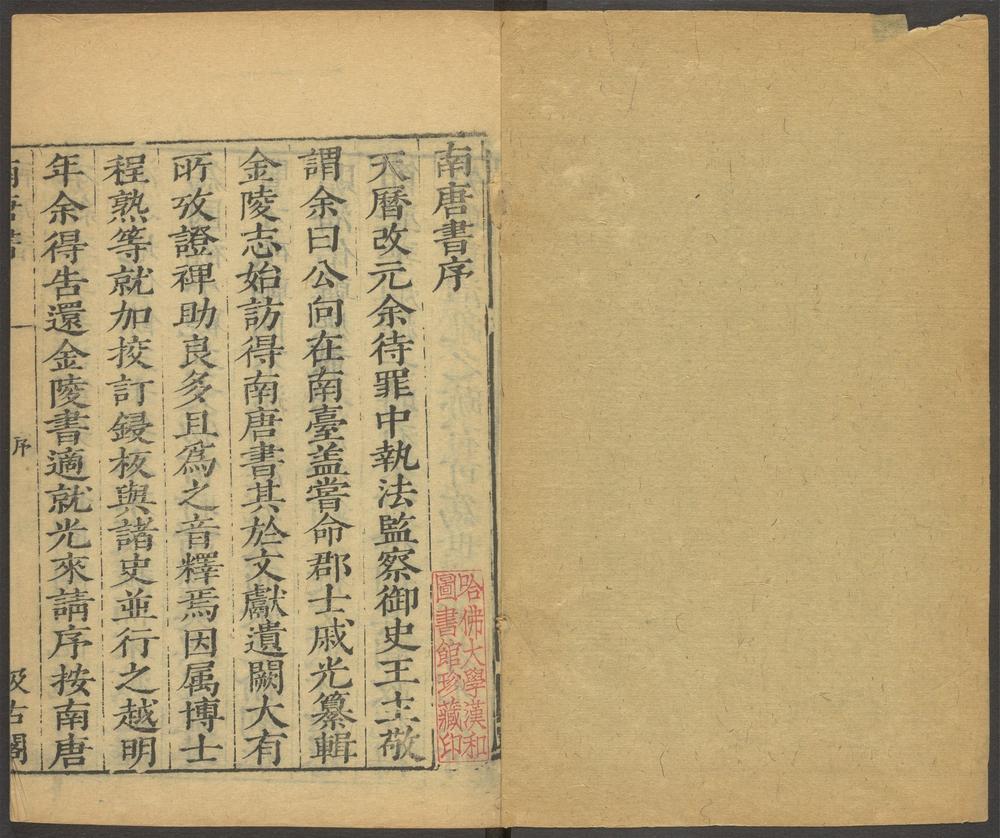 南唐書序
天曆改元余待罪中執法監察御史王士敬
謂余曰公向在南臺盖嘗命郡士戚光纂輯
金陵志始訪得南唐書其於文獻遺闕大有
所攷證裨助良多且爲之音釋焉因属博士
程熟等就加挍訂鋟板與諸史並行之越明
年余得告還金陵書適就光來請序按南唐
南唐書 一 序 汲古閣
哈佛大學漢和
圖書館珍藏印